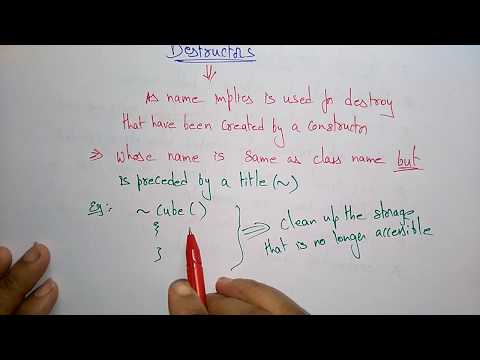 Destructors
⇓
As name implies is used for destroy
that have been created by a constructor
⇒ whose name is same as class name but
is preceded by a title (~)
Eg:- ~ Cube ( )
{
}
⇒ clean up the storage
that is no longer accessible